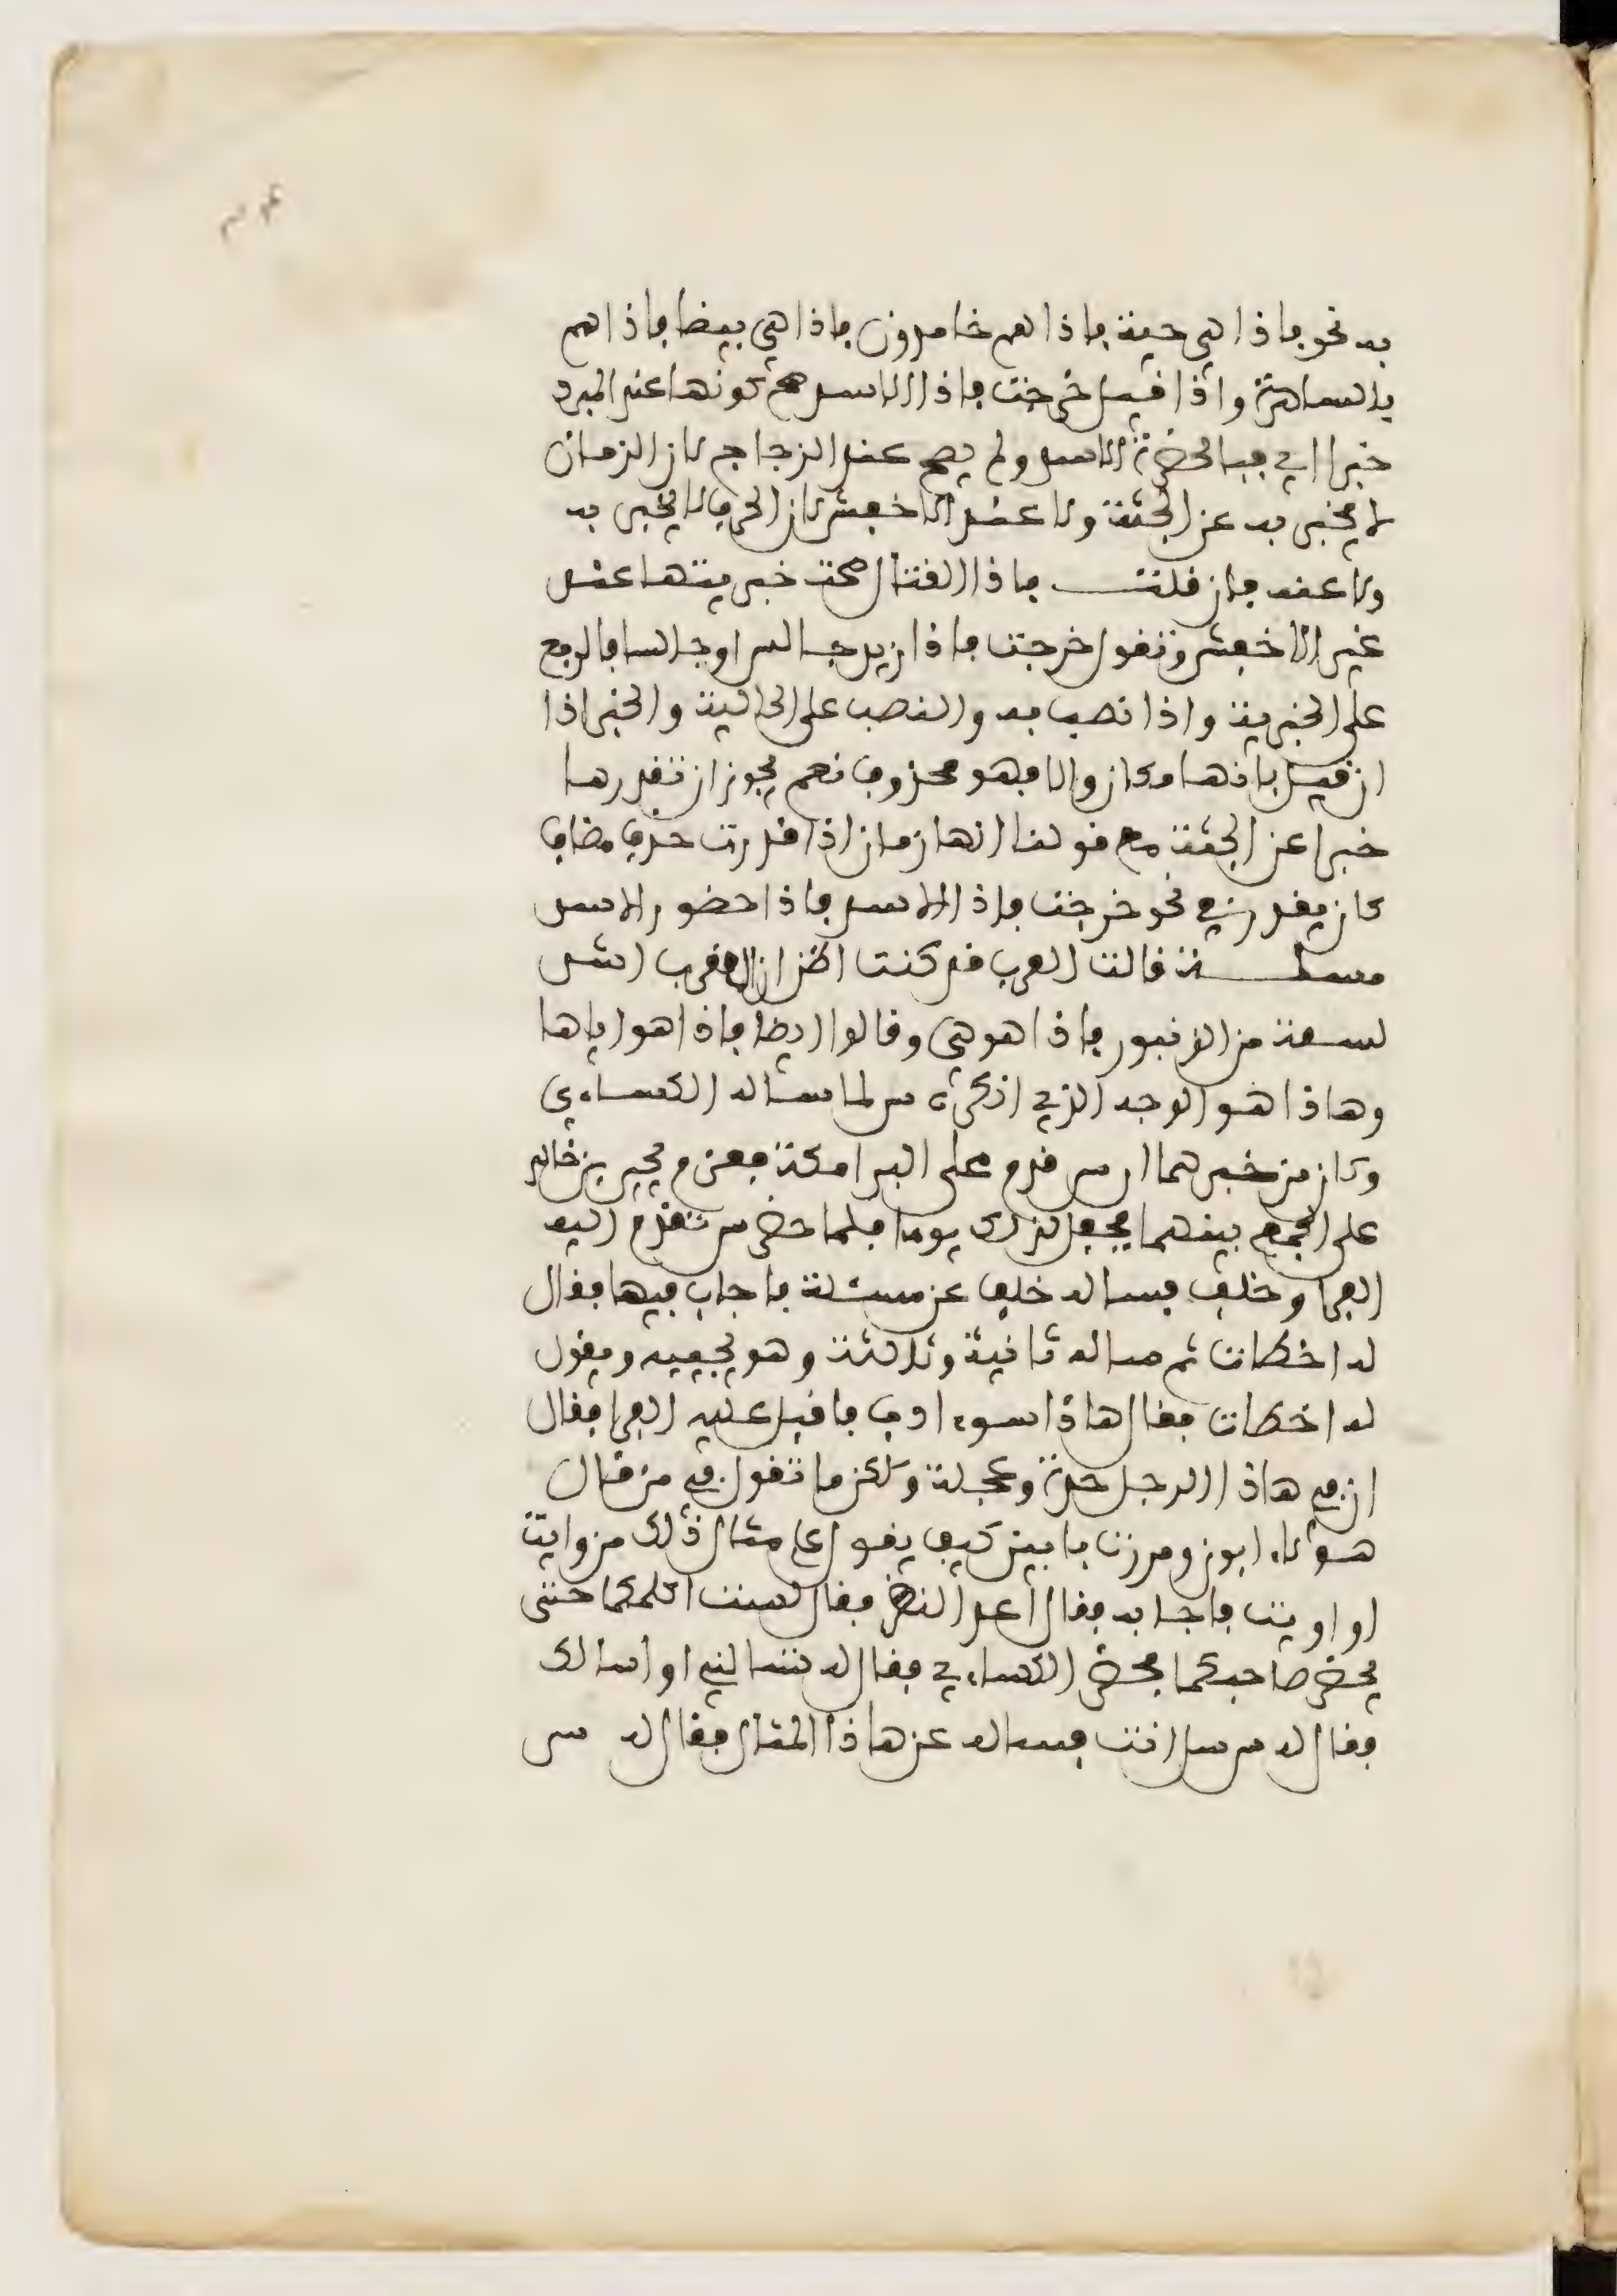 به نحو فاذا هي حية فاذا هم خامدون فاذا هي بيضا فاذا هم
بالساهرة واذا قيل خرجت فاذا الاسد صح كونها عند المبرد
خبرا اي فبالحضرة الاسد ولم يصح عند الزجاج لان الزمان
لا يخبر به عن الجثة ولا عند الاخفش لان الحرف لا يخبر به
ولا عنه فان قلت فاذا القتال صحت خبريتها عند
غير الاخفش وتقول خرجت فاذا زيد جالس او جالسا فالرفع
على الخبرية واذا نصب به والنصب على الحالية والخبر اذا
ان قيل بانها مكان والا فهو محذوف نعم يجوز ان تقدرها
خبرا عن الجثة مع قولنا انها زمان اذا قدرت حذف مضاف
كان يقدر في نحو خرجت فاذ الاسد فاذا حضور الاسد
مسلة قالت العرب قد كنت اظن ان العقرب اشد
لسعة من الزنبور فاذا هو هي وقالوا ايضا فاذا هو اياها
وهاذا هو الوجه الذي انكره س لما ساله الكساءي
وكان من خبرهما ان س قدم على البرامكة فعزم يحيى بن خالد
على الجمع بينهما فجعل لذلك يوما فلما حضر س تقدم اليه
الفرا وخلف فساله خلف عن مسئلة فاجاب فيها فقال
له اخطات ثم ساله ثانية وثالثة وهو يجيبه ويقول
له اخطات فقال هاذا سوء ادب فاقبل عليه الفرا فقال
ان في هاذا الرجل حدة وعجلة ولكن ما تقول في من قال
هؤلاء ابون ومررت بابين كيف يقول على مثال ذلك من وايت
او اويت فاجابه فقال اعد النظر فقال لست اكلمكما حتى
يحضر صاحبكما فحضر الكساءي فقال له تسالني او اسالك
فقال له س سل انت فساله عن هاذا المثال فقال له س